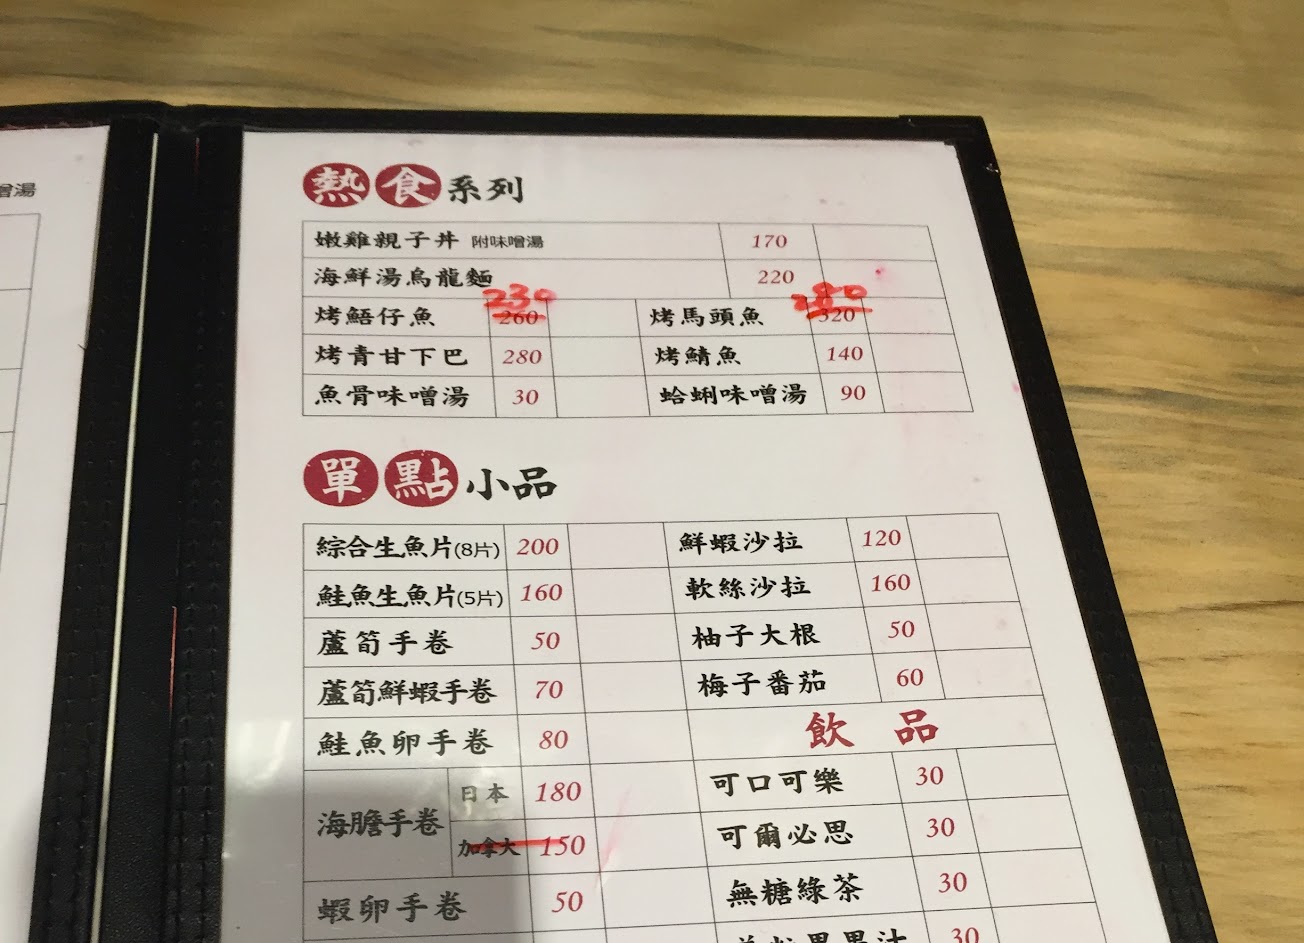 噌湯
熱食系列
嫩雞親子丼 附味噌湯 170
海鮮湯烏龍麵 220
230 280
烤鯃仔魚 260 烤馬頭魚 320
烤青甘下巴 280 烤鯖魚 140
魚骨味噌湯 30 蛤蜊味噌湯 90
單點小品
綜合生魚片(8片) 200 鮮蝦沙拉 120
鮭魚生魚片(5片) 160 軟絲沙拉 160
蘆筍手卷 50 柚子大根 50
蘆筍鮮蝦手卷 70 梅子番茄 60
鮭魚卵手卷 80 飲品
海膽手卷 日本 180 可口可樂 30
加拿大 150 可爾必思 30
蝦卵手卷 50 無糖綠茶 30
果汁 30